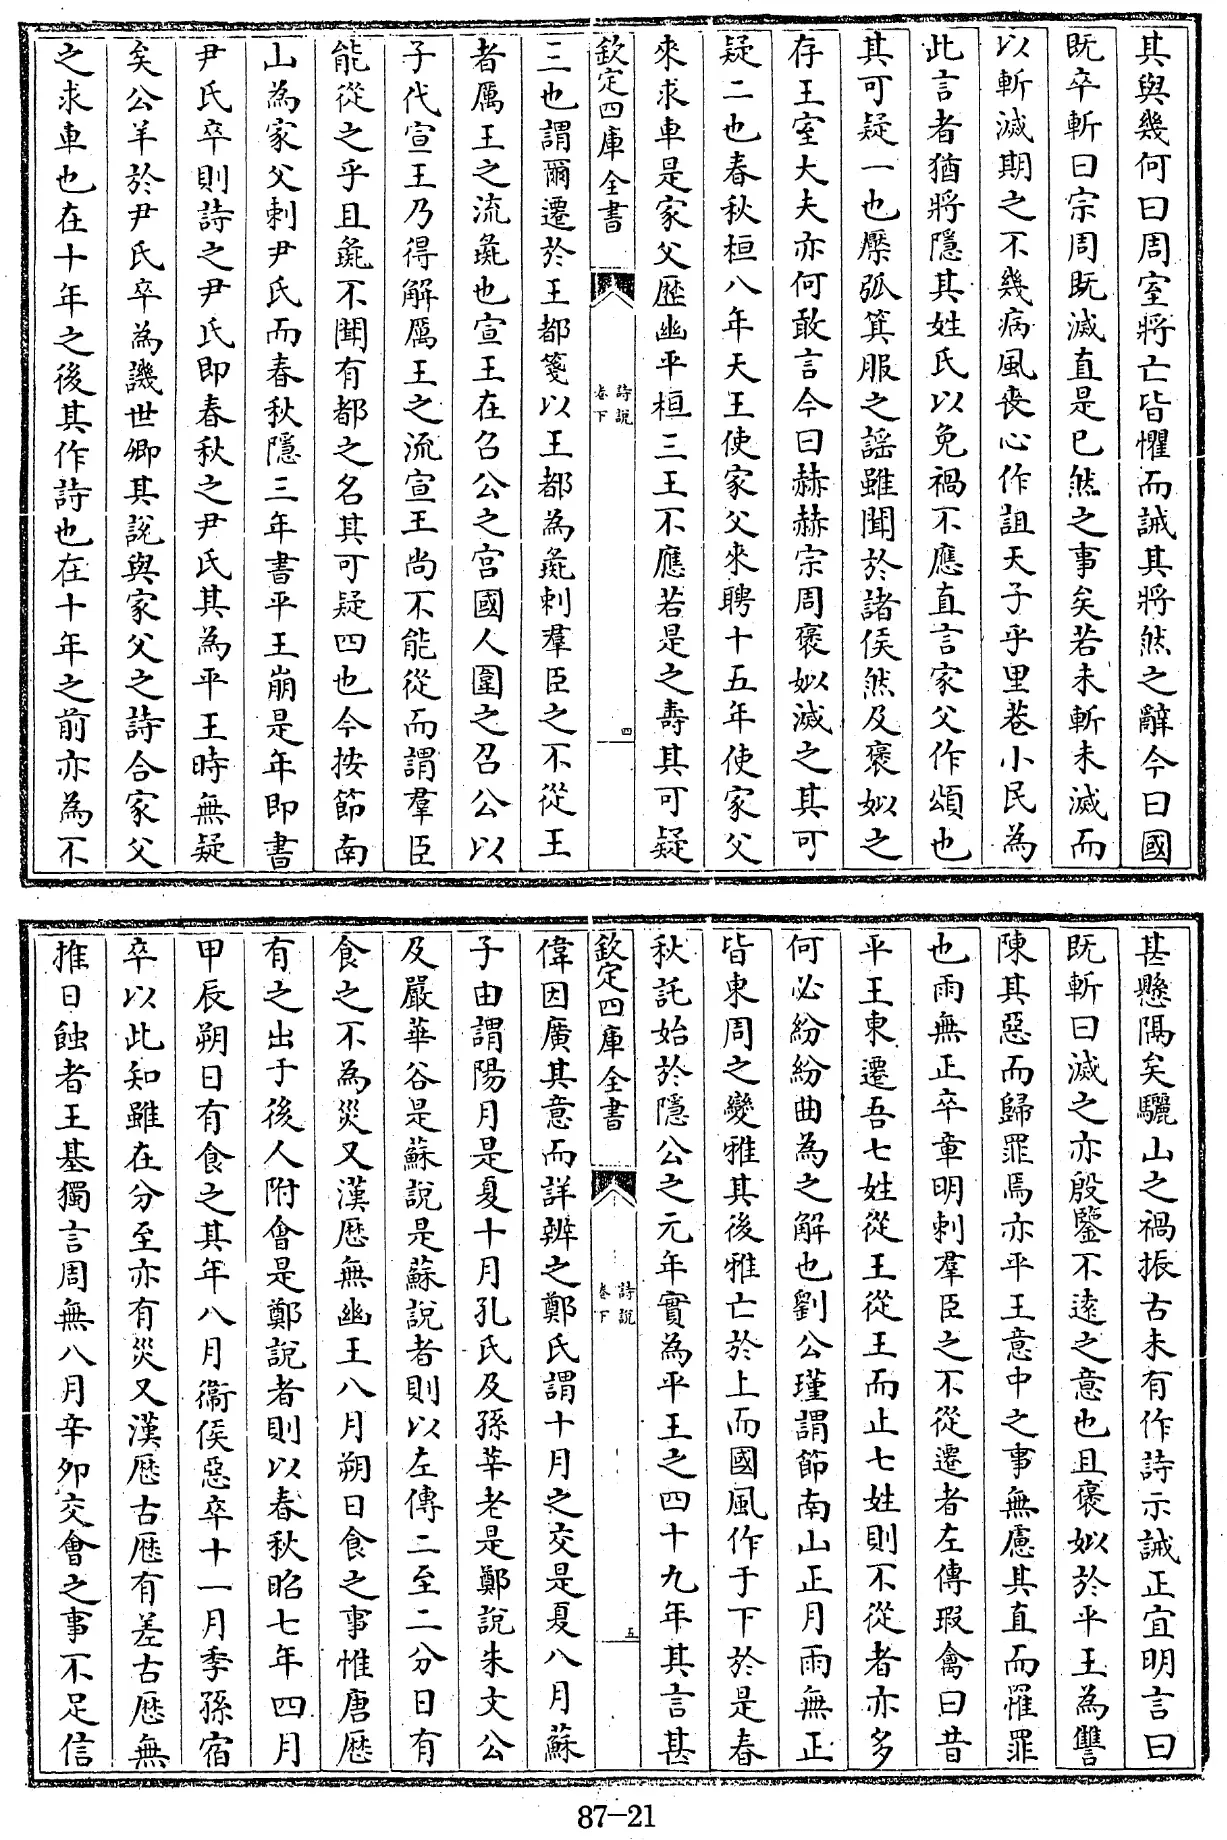 其與幾何曰周室將亡皆懼而誡其將然之辭今曰國
既卒斬曰宗周既滅直是已然之事矣若未斬未滅而
以斬滅期之不幾病風喪心作詛天子乎里巷小民為
此言者猶將隱其姓氏以免禍不應直言家父作頌也
其可疑一也檿弧箕服之謡雖聞於諸侯然及褒姒之
存王室大夫亦何敢言今曰赫赫宗周褒姒滅之其可
疑二也春秋桓八年天王使家父來聘十五年使家父
來求車是家父歴幽平桓三王不應若是之夀其可疑
欽定四庫全書
詩說
卷下
四
三也謂爾遷於王都箋以王都為彘刺羣臣之不從王
者厲王之流彘也宣王在召公之宫國人圍之召公以
子代宣王乃得解厲王之流宣王尚不能從而謂羣臣
能從之乎且彘不聞有都之名其可疑四也今按節南
山為家父刺尹氏而春秋隱三年書平王崩是年即書
尹氏卒則詩之尹氏即春秋之尹氏其為平王時無疑
矣公羊於尹氏卒為譏世卿其說與家父之詩合家父
之求車也在十年之後其作詩也在十年之前亦為不
甚懸隔矣驪山之禍振古未有作詩示誡正宜明言曰
既斬曰滅之亦殷鑒不逺之意也且褒姒於平王為讐
陳其惡而歸罪焉亦平王意中之事無慮其直而罹罪
也雨無正卒章明刺羣臣之不從遷者左傳瑕禽曰昔
平王東遷吾七姓從王從王而止七姓則不從者亦多
何必紛紛曲為之解也劉公瑾謂節南山正月雨無正
皆東周之變雅其後雅亡於上而國風作于下於是春
秋託始於隱公之元年實為平王之四十九年其言甚
欽定四庫全書
詩說
卷下
五
偉因廣其意而詳辨之鄭氏謂十月之交是夏八月蘇
子由謂陽月是夏十月孔氏及孫莘老是鄭說朱文公
及嚴華谷是蘇說是蘇說者則以左傳二至二分日有
食之不為災又漢歴無幽王八月朔日食之事惟唐歴
有之出于後人附會是鄭說者則以春秋昭七年四月
甲辰朔日有食之其年八月衞侯惡卒十一月季孫宿
卒以此知雖在分至亦有災又漢歴古歴有差古歴無
推日蝕者王基獨言周無八月辛卯交會之事不足信
87-21